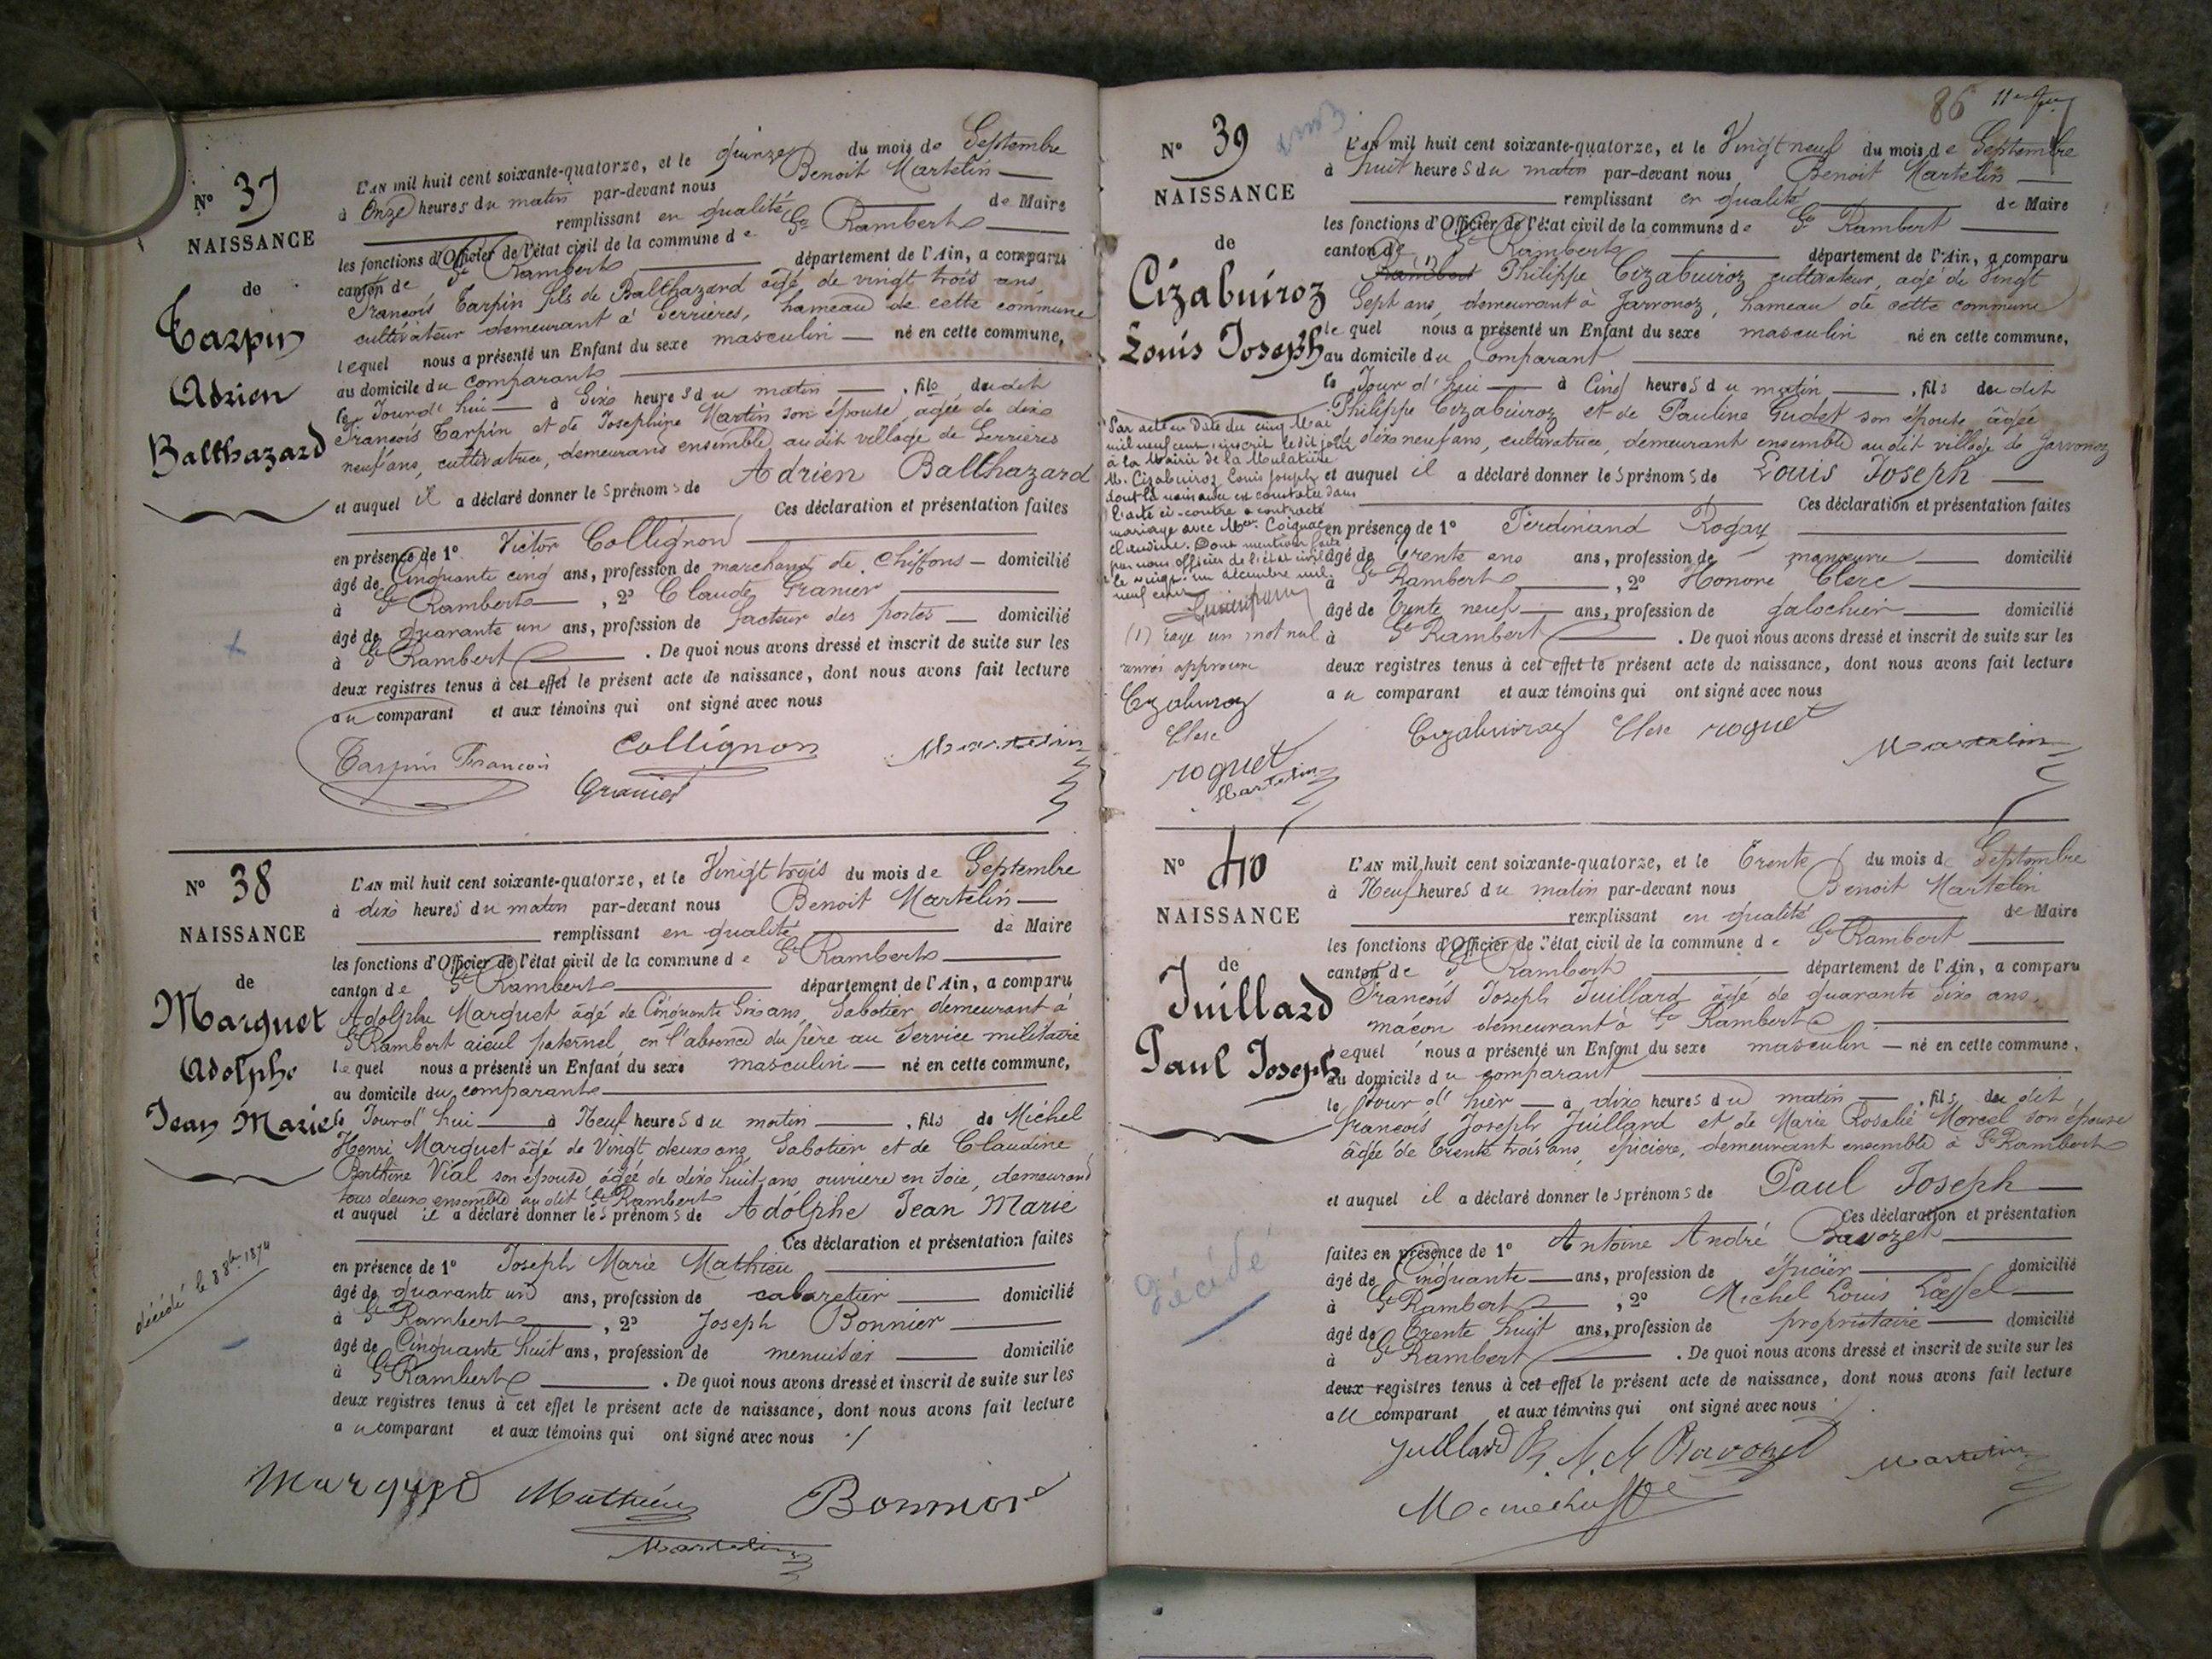 N° 37
NAISSANCE
de
Tarpin
Adrien
Balthazard
L'AN mil huit cent soixante-quatorze, et le quinze du mois de Septembre
à Onze heures du matin par-devant nous Benoit Martelin
remplissant en qualité de Maire
les fonctions d'Officier de l'état civil de la commune de St Rambert
canton de St Rambert département de l'Ain, a comparu
François Tarpin fils de Balthazard âgé de vingt trois ans
cultivateur demeurant à Serrières, hameau de cette commune
lequel nous a présenté un Enfant du sexe masculin né en cette commune,
au domicile du comparant
le Jourd'hui à Six heures du matin, fils dudit
François Tarpin et de Josephine Martin son épouse, âgée de dix
neuf ans, cultivatrice, demeurant ensemble audit village de Serrières
et auquel il a déclaré donner les prénoms de Adrien Balthazard
Ces déclaration et présentation faites
en présence de 1° Victor Collignon
âgé de Cinquante cinq ans, profession de marchand de chiffons domicilié
à St Rambert, 2° Claude Granier
âgé de quarante un ans, profession de facteur des postes domicilié
à St Rambert. De quoi nous avons dressé et inscrit de suite sur les
deux registres tenus à cet effet le présent acte de naissance, dont nous avons fait lecture
au comparant et aux témoins qui ont signé avec nous
Tarpin François Collignon Martelin
Granier
N° 38
NAISSANCE
de
Marquet
Adolphe
Jean Marie
décédé le 8 8bre 1874
L'AN mil huit cent soixante-quatorze, et le Vingt trois du mois de Septembre
à dix heures du matin par-devant nous Benoit Martelin
remplissant en qualité de Maire
les fonctions d'Officier de l'état civil de la commune de St Rambert
canton de St Rambert département de l'Ain, a comparu
Adolphe Marquet âgé de Cinquante Six ans, Sabotier demeurant à
St Rambert aieul paternel, en l'absence du père au Service militaire
lequel nous a présenté un Enfant du sexe masculin né en cette commune,
au domicile du comparant
le Jourd'hui à Neuf heures du matin, fils de Michel
Henri Marquet âgé de Vingt deux ans, Sabotier et de Claudine
Berthine Vial son épouse âgée de dix huit ans ouvrière en Soie, demeurant
tous deux ensemble audit St Rambert
et auquel il a déclaré donner les prénoms de Adolphe Jean Marie
Ces déclaration et présentation faites
en présence de 1° Joseph Marie Mathieu
âgé de quarante un ans, profession de cabaretier domicilié
à St Rambert, 2° Joseph Bonnier
âgé de Cinquante huit ans, profession de menuisier domicilié
à St Rambert. De quoi nous avons dressé et inscrit de suite sur les
deux registres tenus à cet effet le présent acte de naissance, dont nous avons fait lecture
au comparant et aux témoins qui ont signé avec nous
Marquet Mathieu Bonnier
Martelin
86
N° 39
NAISSANCE
de
Cizabuiroz
Louis Joseph
L'AN mil huit cent soixante-quatorze, et le Vingt neuf du mois de Septembre
à huit heures du matin par-devant nous Benoit Martelin
remplissant en qualité de Maire
les fonctions d'Officier de l'état civil de la commune de St Rambert
canton de St Rambert département de l'Ain, a comparu
Rambert (1) Philippe Cizabuiroz cultivateur, âgé de Vingt
Sept ans, demeurant à Javronoz, hameau de cette commune
lequel nous a présenté un Enfant du sexe masculin né en cette commune,
au domicile du comparant
le Jour d'hui à Cinq heures du matin, fils dudit
Philippe Cizabuiroz et de Pauline Gudet son épouse, âgée
de dix neuf ans, cultivatrice, demeurant ensemble audit village de Javronoz
et auquel il a déclaré donner les prénoms de Louis Joseph
Ces déclaration et présentation faites
en présence de 1° Ferdinand Rogay
âgé de Trente ans ans, profession de manœuvre domicilié
à St Rambert, 2° Honoré Clerc
âgé de Trente neuf ans, profession de galochier domicilié
à St Rambert. De quoi nous avons dressé et inscrit de suite sur les
deux registres tenus à cet effet le présent acte de naissance, dont nous avons fait lecture
au comparant et aux témoins qui ont signé avec nous
Cizabuiroz Clerc roguet
Martelin
Par acte en Date du cinq Mai
mil neuf cent, inscrit ledit jour
à la Mairie de la Mulatière
M. Cizabuiroz Louis Joseph
dont la naissance est constatée dans
l'acte ci-contre a contracté
mariage avec Coignac
Claudine. Dont mention faite
par nous, officier de l'état civil
le vingt-un décembre mil
neuf cent
(1) rayé un mot nul
approuvé
Cizabuiroz
Clerc
roguet
Martelin
N° 40
NAISSANCE
de
Juillard
Paul Joseph
Décédé
L'AN mil huit cent soixante-quatorze, et le Trente du mois de Septembre
à Neuf heures du matin par-devant nous Benoit Martelin
remplissant en qualité de Maire
les fonctions d'Officier de l'état civil de la commune de St Rambert
canton de St Rambert département de l'Ain, a comparu
François Joseph Juillard âgé de quarante Six ans,
maçon demeurant à St Rambert
lequel nous a présenté un Enfant du sexe masculin né en cette commune,
au domicile du comparant
le Jour d'hier à dix heures du matin, fils du dit
françois Joseph Juillard et de Marie Rosalie Morcel son épouse
âgée de Trente trois ans, épicière, demeurant ensemble à St Rambert
et auquel il a déclaré donner les prénoms de Paul Joseph
Ces déclaration et présentation
faites en présence de 1° Antoine André Bavozet
âgé de Cinquante ans, profession de épicier domicilié
à St Rambert, 2° Michel Louis
âgé de Trente huit ans, profession de propriétaire domicilié
à St Rambert. De quoi nous avons dressé et inscrit de suite sur les
deux registres tenus à cet effet le présent acte de naissance, dont nous avons fait lecture
au comparant et aux témoins qui ont signé avec nous
Juillard Bavozet Martelin